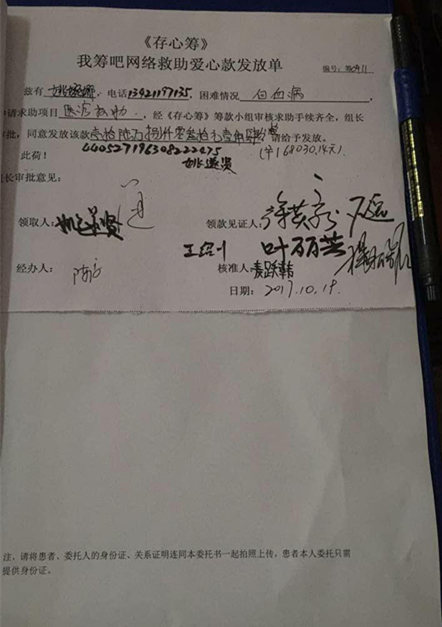 《存心筹》
我筹吧网络救助爱心款发放单
编号：
兹有 电话13421197135，困难情况 白血病
申请求助项目 医疗救助，经《存心筹》筹款小组审核求助手续齐全，组长
审批，同意发放该款壹拾陆万捌仟零叁拾元壹角肆分，请给予发放。
此荷！ 440527196308222475 （¥168030.14元）
组长审批意见：
领取人： 领款见证人：
叶丽芸
经办人： 核准人：麦跃韩
日期：2017.10.19.
注，请将患者、委托人的身份证、关系证明连同本委托书一起拍照上传，患者本人委托只需
提供身份证。